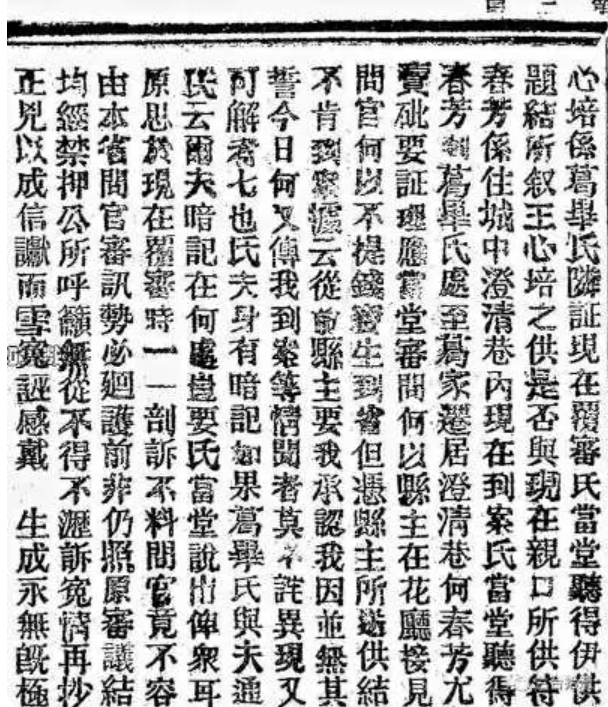 心培係葛畢氏隣証現在覆審氏當堂聽得伊供
題結所叙王心培之供是否與現在親口所供符
春芳係住城中澄清巷內現在到案氏當堂聽得
春芳到葛畢氏處至葛家遷居澄清巷何春芳尤
賣砒要証理應當堂審問何以縣主在花廳接見
問官何以不提錢寶生到省但憑縣主所送供結
不肯到案據云從前縣主要我承認我因並無其
誓今日何又傳我到案等情聞者莫不詫異現又
可解者七也氏夫身有暗記如果葛畢氏與夫通
氏云爾夫暗記在何處豈要氏當堂說出俾衆耳
原思於現在覆審時一一剖訴不料問官竟不容
由本省問官審訊勢必廻護前非仍照原審議結
均經禁押公所呼籲無從不得不瀝訴冤情再抄
正兇以成信讞而雪冤誣感戴　生成永無既極